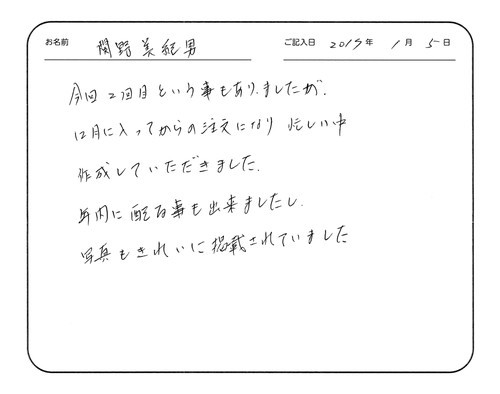 お名前 関野美紀男 ご記入日 2019年 1月 5日
今回2回目という事もありましたが、
12月に入ってからの注文になり 忙しい中
作成していただきました。
年内に配る事も出来ましたし、
写真もきれいに掲載されていました